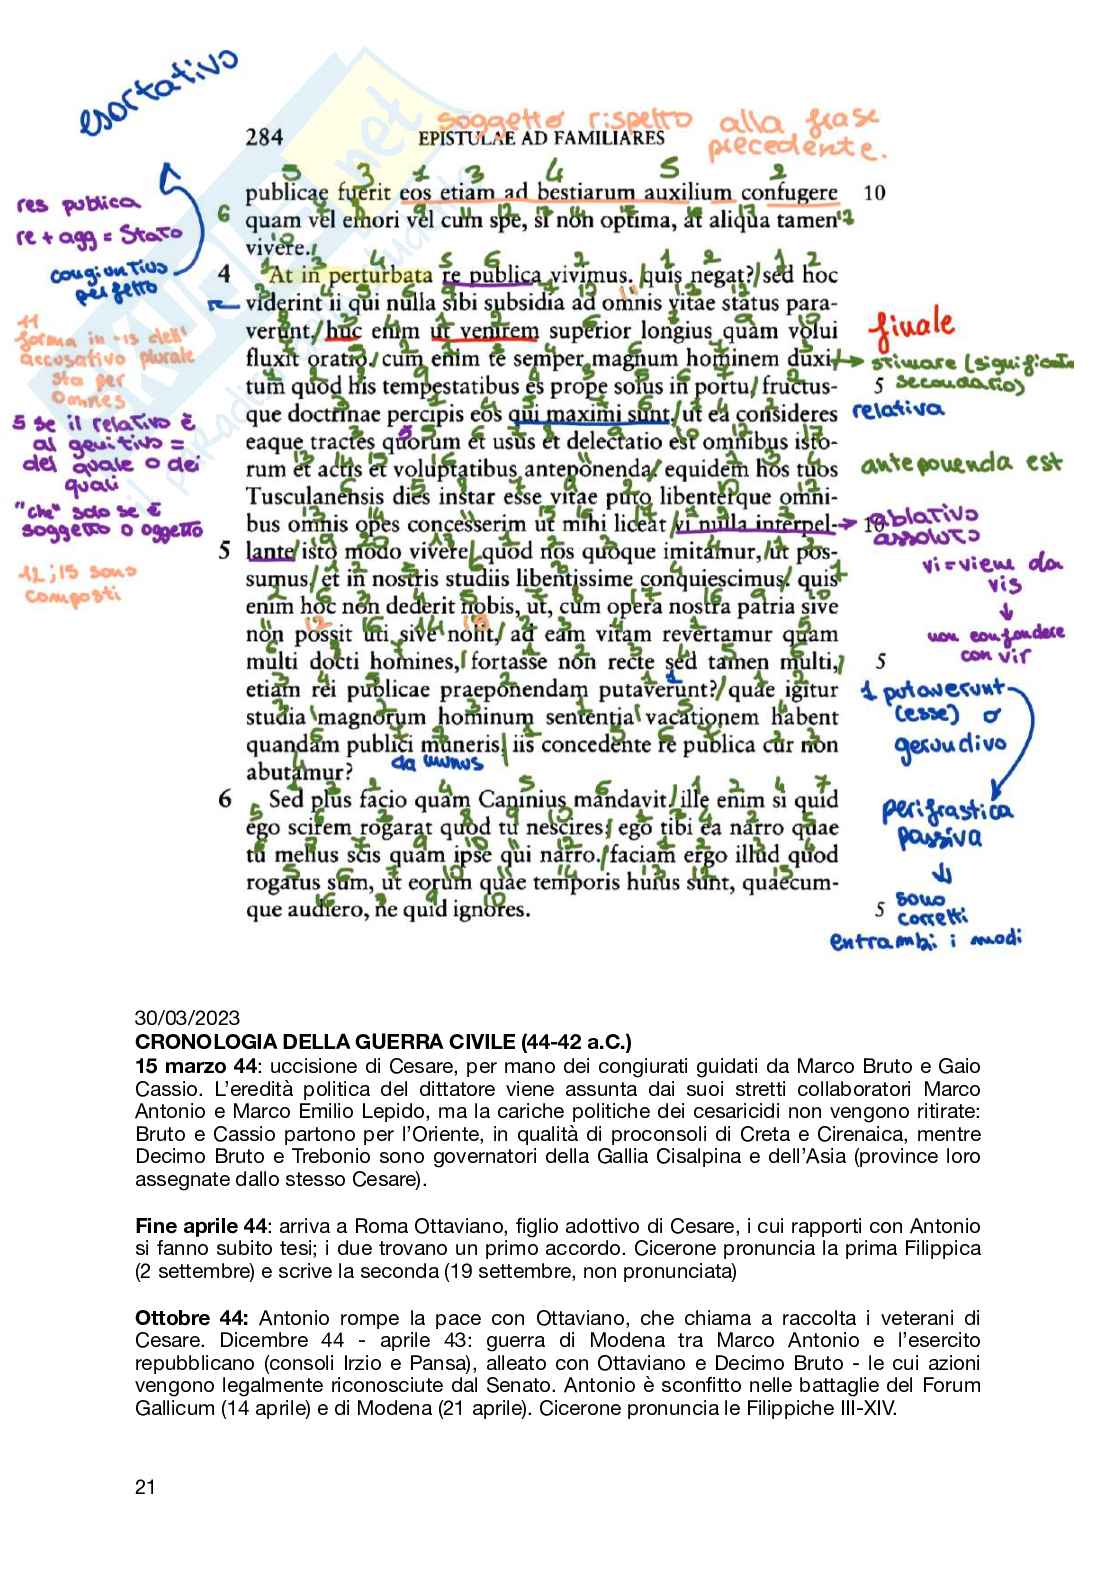 esortativo
soggetto rispetto alla frase
precedente.
284 EPISTULAE AD FAMILIARES
publicae fuerit eos etiam ad bestiarum auxilium confugere 10
quam vel emori vel cum spe, si non optima, at aliqua tamen
vivere.
4 At in perturbata re publica vivimus. quis negat? sed hoc
viderint ii qui nulla sibi subsidia ad omnis vitae status para-
verunt. huc enim ut venirem superior longius quam volui
fluxit oratio. cum enim te semper magnum hominem duxi
tum quod his tempestatibus es prope solus in portu fructus- 5
que doctrinae percipis eos qui maximi sunt, ut ea consideres
eaque tractes quorum et usus et delectatio est omnibus isto-
rum et actis et voluptatibus anteponenda. equidem hos tuos
Tusculanensis dies instar esse vitae puto libenterque omni-
bus omnis opes concesserim ut mihi liceat vi nulla interpel- 10
5 lante isto modo vivere. quod nos quoque imitamur, ut pos-
sumus, et in nostris studiis libentissime conquiescimus. quis
enim hoc non dederit nobis, ut, cum opera nostra patria sive
non possit uti sive nolit, ad eam vitam revertamur quam
multi docti homines, fortasse non recte sed tamen multi, 5
etiam rei publicae praeponendam putaverunt? quae igitur
studia magnorum hominum sententia vacationem habent
quandam publici muneris, iis concedente re publica cur non
abutamur?
da munus
6 Sed plus facio quam Caninius mandavit. ille enim si quid
ego scirem rogarat quod tu nescires; ego tibi ea narro quae
tu melius scis quam ipse qui narro. faciam ergo illud quod
rogatus sum, ut eorum quae temporis huius sunt, quaecum-
que audiero, ne quid ignores. 5
res publica
re + agg = Stato
congiuntivo
perfetto
11
forma in -is dell'
accusativo plurale
sta per
omnes
5 se il relativo è
al genitivo =
del quale o dei
quali
"che" solo se è
soggetto o oggetto
12; 15 sono
composti
finale
stimare (significato
secondario)
relativa
anteponenda est
ablativo
assoluto
vi = viene da
vis
non confondere
con vir
1 putaverunt
(esse) o
gerundivo
perifrastica
passiva
sono
corretti
entrambi i modi
30/03/2023
CRONOLOGIA DELLA GUERRA CIVILE (44-42 a.C.)
15 marzo 44: uccisione di Cesare, per mano dei congiurati guidati da Marco Bruto e Gaio
Cassio. L'eredità politica del dittatore viene assunta dai suoi stretti collaboratori Marco
Antonio e Marco Emilio Lepido, ma la cariche politiche dei cesaricidi non vengono ritirate:
Bruto e Cassio partono per l'Oriente, in qualità di proconsoli di Creta e Cirenaica, mentre
Decimo Bruto e Trebonio sono governatori della Gallia Cisalpina e dell'Asia (province loro
assegnate dallo stesso Cesare).
Fine aprile 44: arriva a Roma Ottaviano, figlio adottivo di Cesare, i cui rapporti con Antonio
si fanno subito tesi; i due trovano un primo accordo. Cicerone pronuncia la prima Filippica
(2 settembre) e scrive la seconda (19 settembre, non pronunciata)
Ottobre 44: Antonio rompe la pace con Ottaviano, che chiama a raccolta i veterani di
Cesare. Dicembre 44 - aprile 43: guerra di Modena tra Marco Antonio e l'esercito
repubblicano (consoli Irzio e Pansa), alleato con Ottaviano e Decimo Bruto - le cui azioni
vengono legalmente riconosciute dal Senato. Antonio è sconfitto nelle battaglie del Forum
Gallicum (14 aprile) e di Modena (21 aprile). Cicerone pronuncia le Filippiche III-XIV.
21